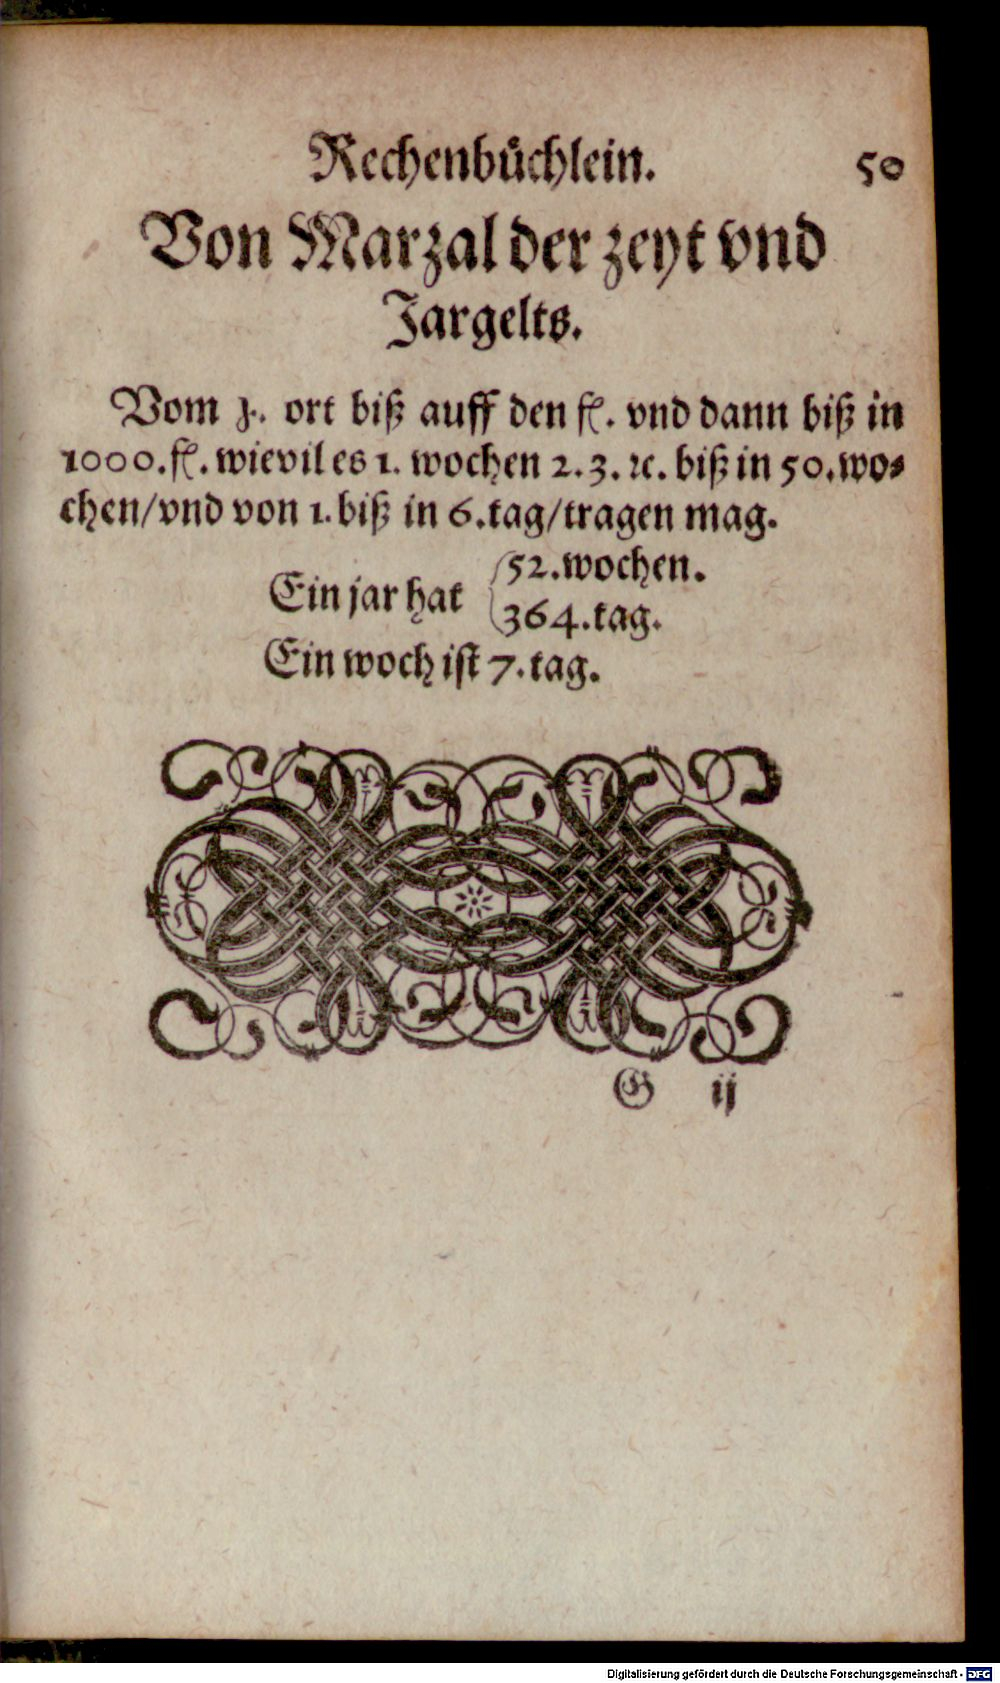 Rechenbüchlein. 50
Von Marzal der zeyt vnd
Jargelts.
Vom ʒ. ort biß auff den fl. vnd dann biß in
1000. fl. wievil es 1. wochen 2. 3. ꝛc. biß in 50. wo⸗
chen/vnd von 1. biß in 6. tag/tragen mag.
Ein jar hat 52. wochen.
364. tag.
Ein woch ist 7. tag.
G ij
Digitalisierung gefördert durch die Deutsche Forschungsgemeinschaft - DFG